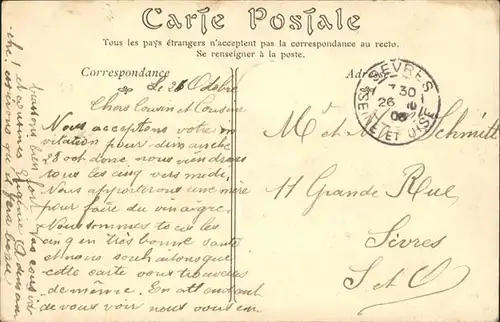 Carte Postale
Tous les pays étrangers n'acceptent pas la correspondance au recto.
Se renseigner à la poste.
Correspondance
Adresse
Le 26 Octobre
Chers Cousin et Cousine
Nous acceptons votre in
vitation pour dimanche
28 ost. donc nous viendrons
tous les cinq vers midi.
Nous apporterons une mère
pour faire du vinaigre.
Nous sommes tous les
cinq en très bonne santé
et nous souhaitons que
cette carte vous trouvera
de même. En attendant
de vous voir nous vous em
brassons bien fort. Vos cousins
et cousines Eugène
che! espérons qu'il fera beau
SÈVRES
7 30
26
06
SEINE ET OISE
M. et M Schmitt
11 Grande Rue,
Sèvres
S. et O.